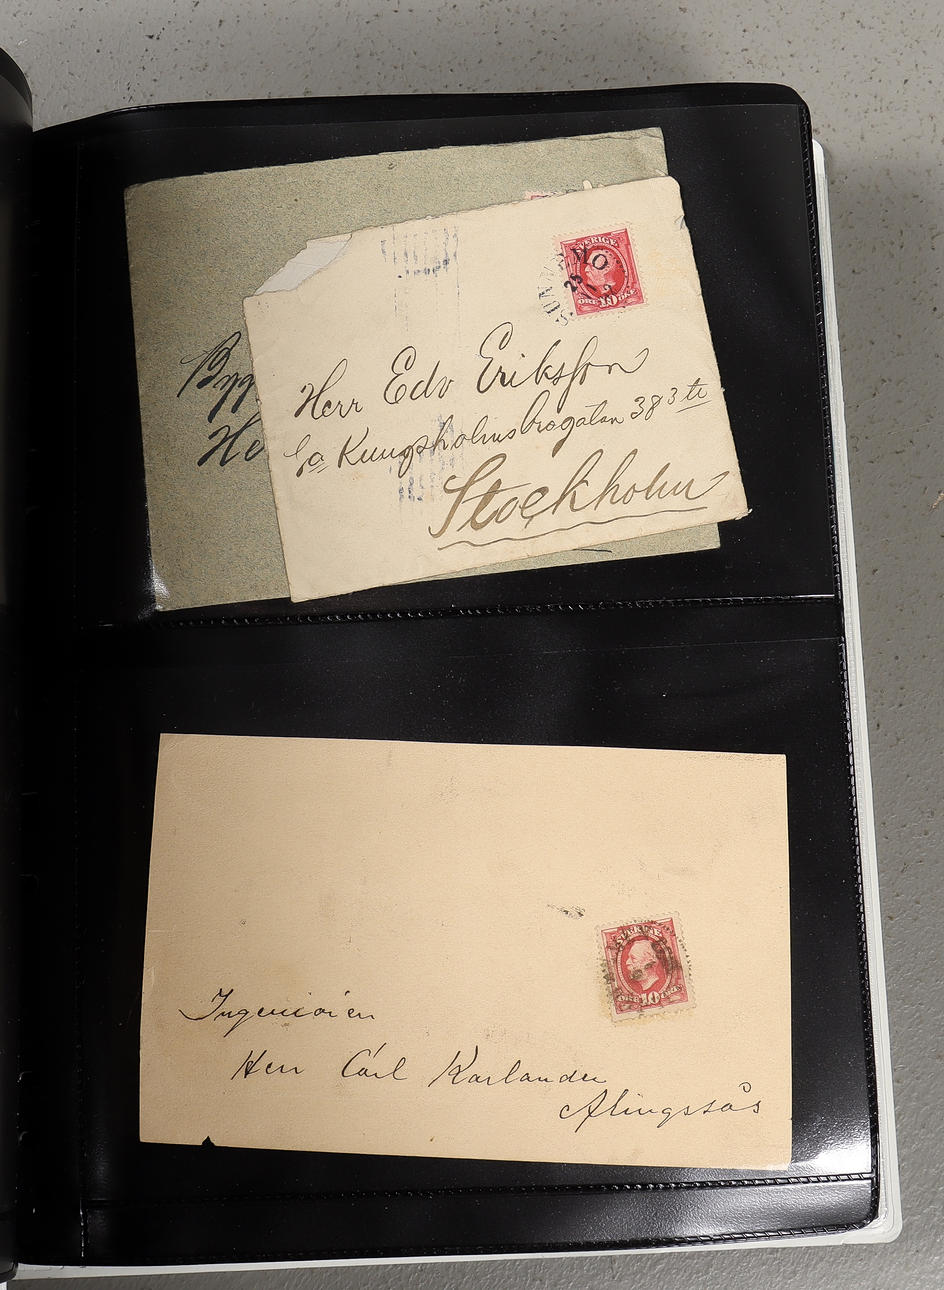 SVERIGE
ÖRE 10 ÖRE
23
11
Herr Edv Eriksson
Kungsholmsbrogatan 38 3 tr
Stockholm
He
SVERIGE
ÖRE 10 ÖRE
Ingeniören
Herr Carl Karlander
Alingsås